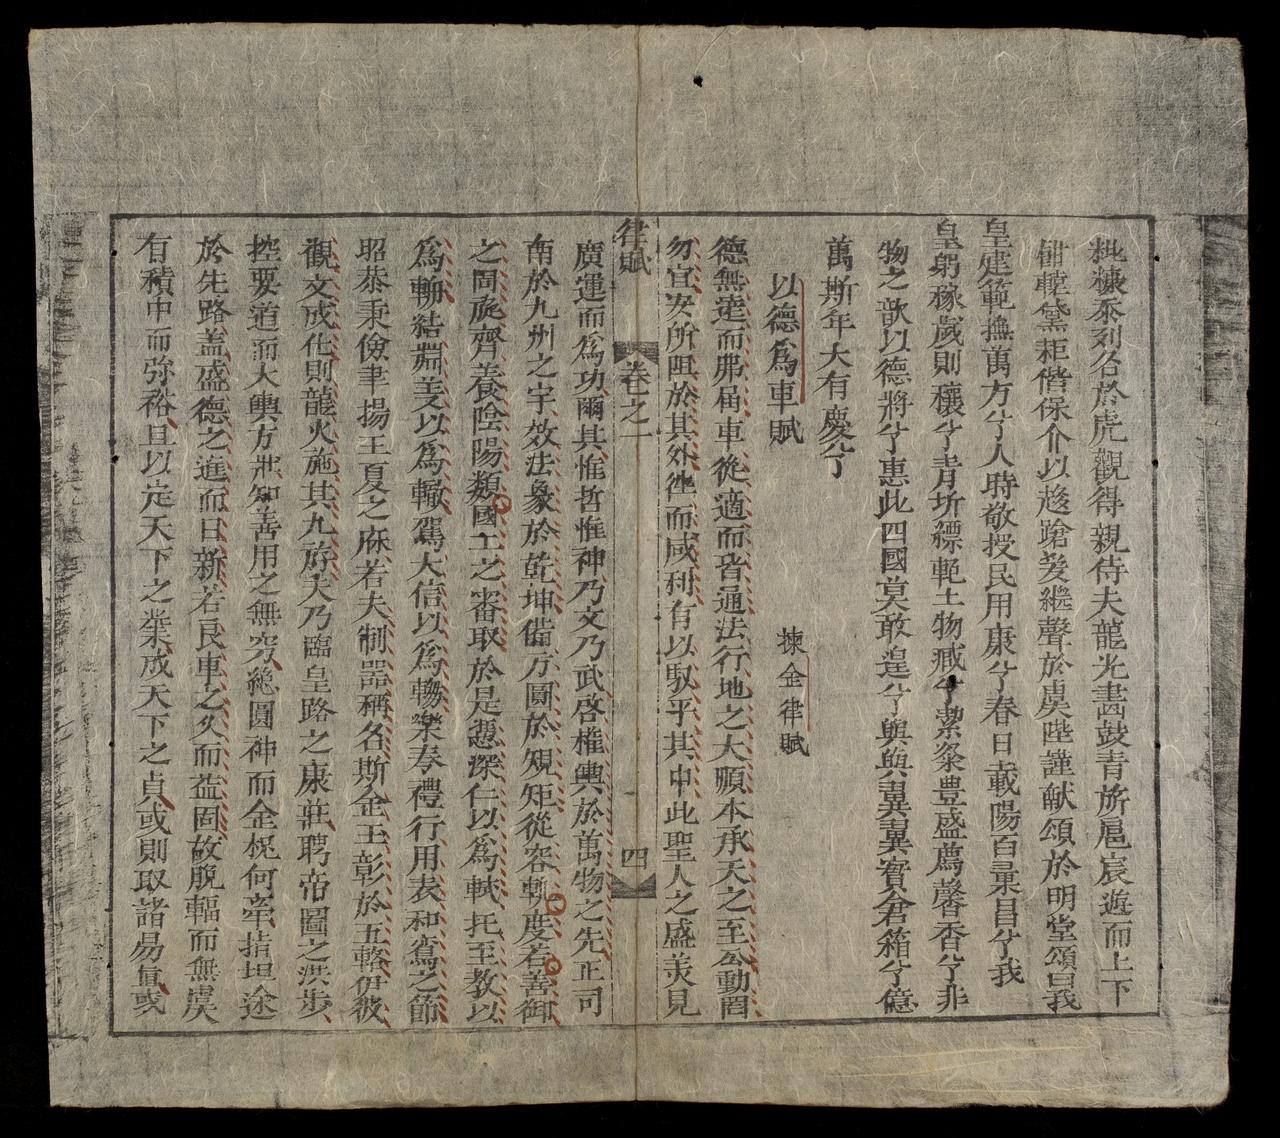 粃糠忝列名於虎觀得親侍夫龍光晝鼓青旂扈宸遊而上下
紺轅黛耜偕保介以趍蹌爰繼聲於虞陛謹献頌於明堂頌曰我
皇建範撫萬方兮人時敬授民用康兮春日載陽百菓昌兮我
皇躬稼歲則穰兮青圻縹軛土物臧兮絜粢豊盛薦馨香兮非
物之歆以德將兮惠此四國莫敢遑兮與與翼翼實倉箱兮億
萬斯年大有慶兮
以德爲車賦
揀金律賦
德無遠而弗屆車從適而皆通法行地之大順本承天之至公動罔
勿宜安所阻於其外徃而咸利有以馭乎其中此聖人之盛羙見
律賦
卷之一
四
廣運而爲功爾其惟哲惟神乃文乃武啓權輿於萬物之先正司
南於九州之宇效法象於乾坤備方圓於規矩從容軌度若善御
之周旋齊養陰陽類國工之審取於是慿深仁以爲軾托至教以
爲輈結端羙以爲轍駕大信以爲輈樂奏禮行用表和鸞之節
昭恭秉儉聿揚王夏之庥若夫制噐稱名斯金玉彰於五輅伊彼
觀文成化則龍火施其九斿夫乃臨皇路之康莊聘帝圖之洪步
控要道而大輿方駕知善用之無窮絶圓神而金柅何牽指坦途
於先路盖盛德之進而日新若良車之久而益固故脱輻而無虞
有積中而弥裕且以定天下之業成天下之貞或則取諸易眞或